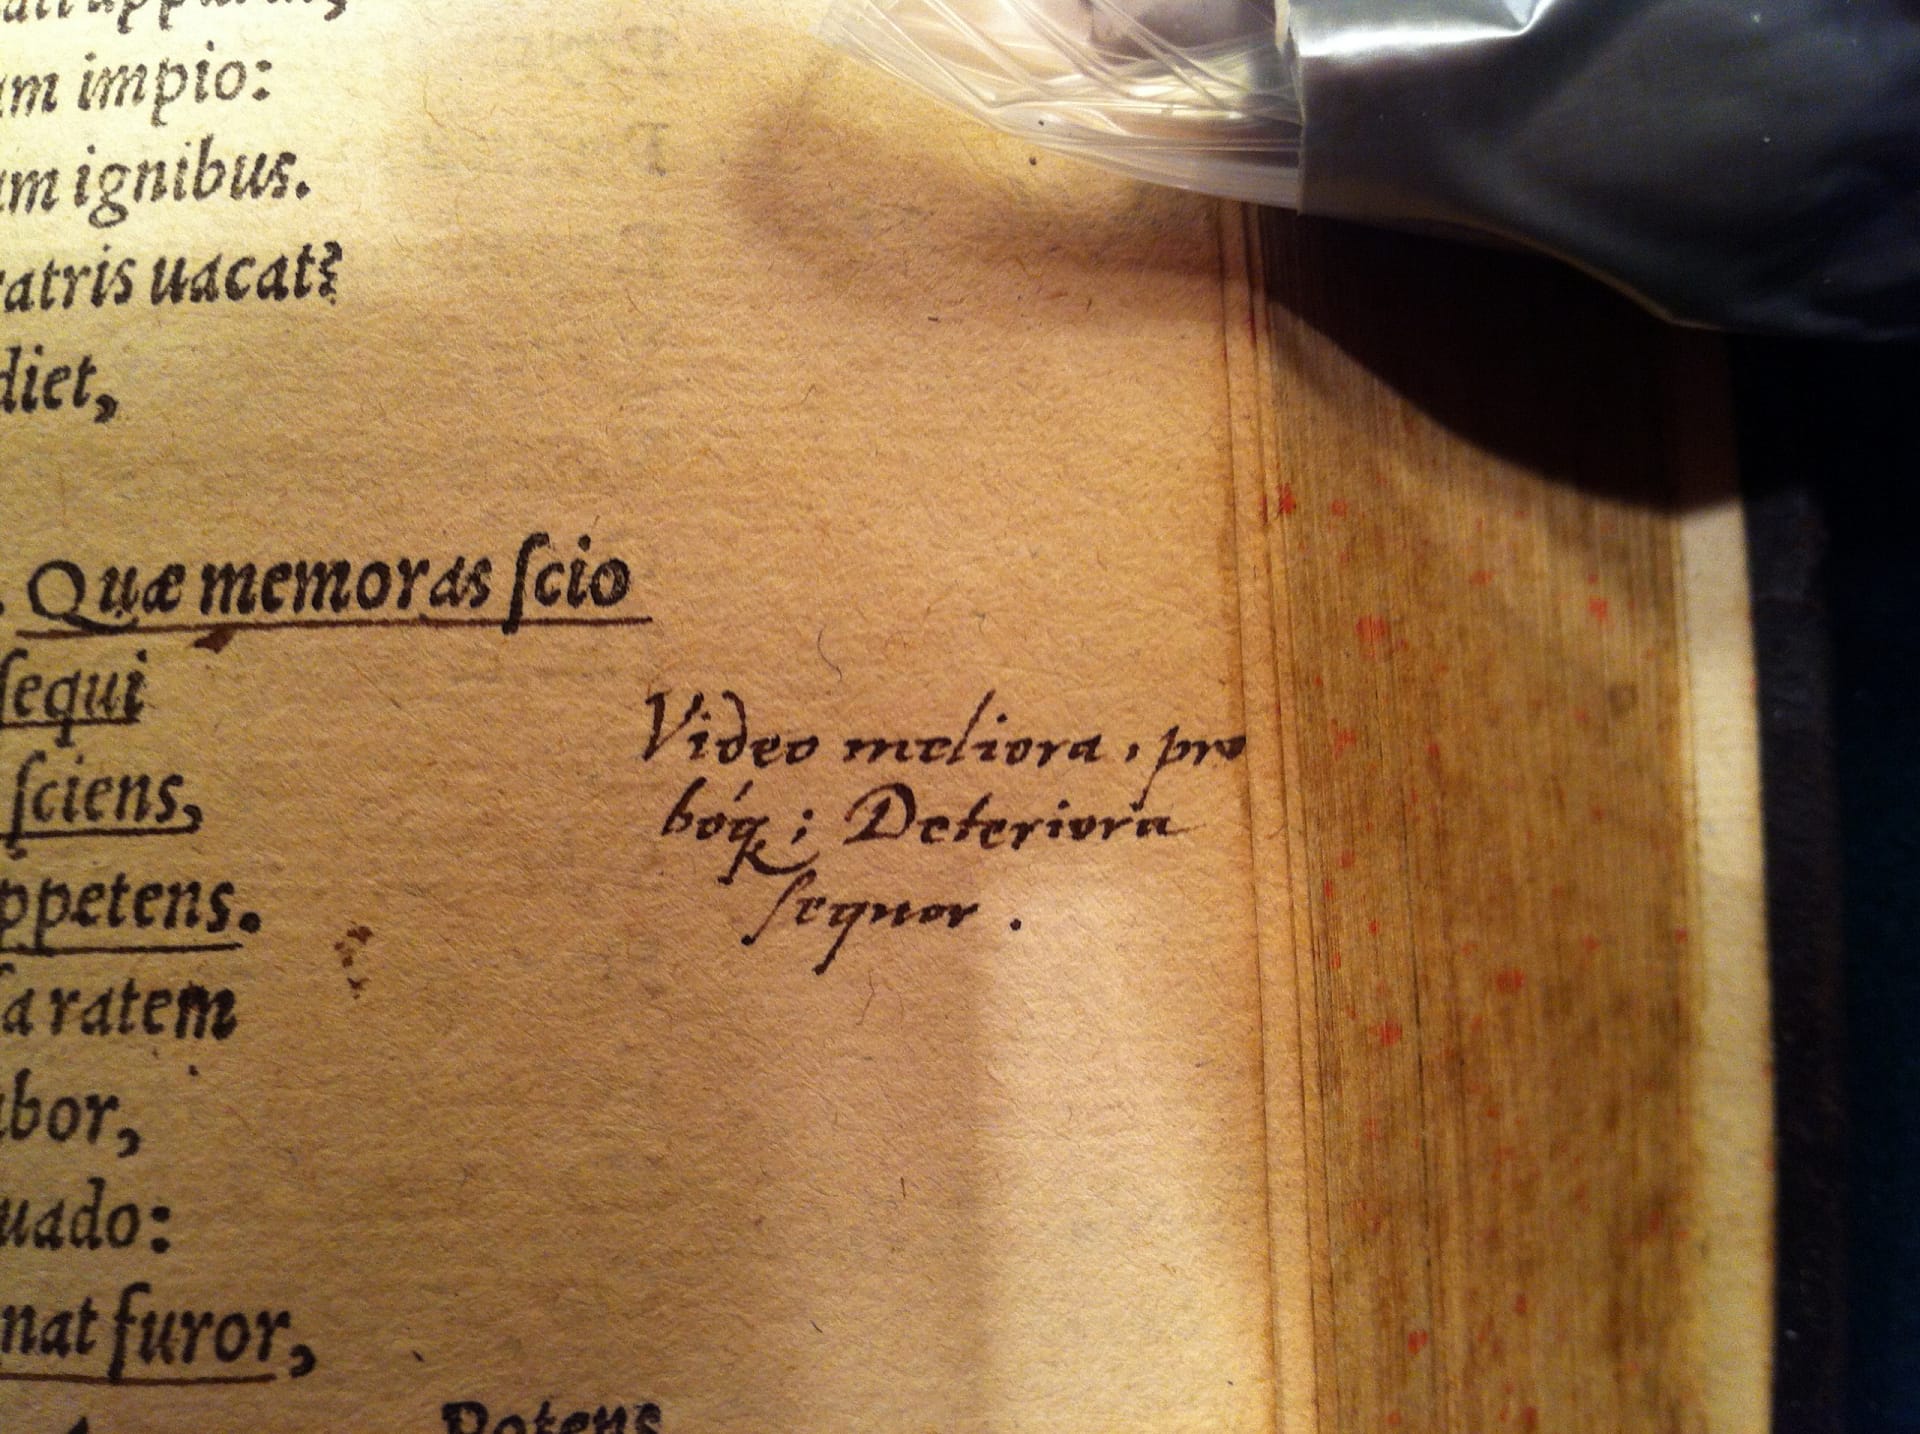 um impio:
um ignibus.
ratris uacat?
diet,
. Quæ memoras ſcio
ſequi
ſciens,
ppetens.
ſa ratem
abor,
uado:
nat furor,
Potens
Video meliora, pro
bóq; Deteriora
ſequor.